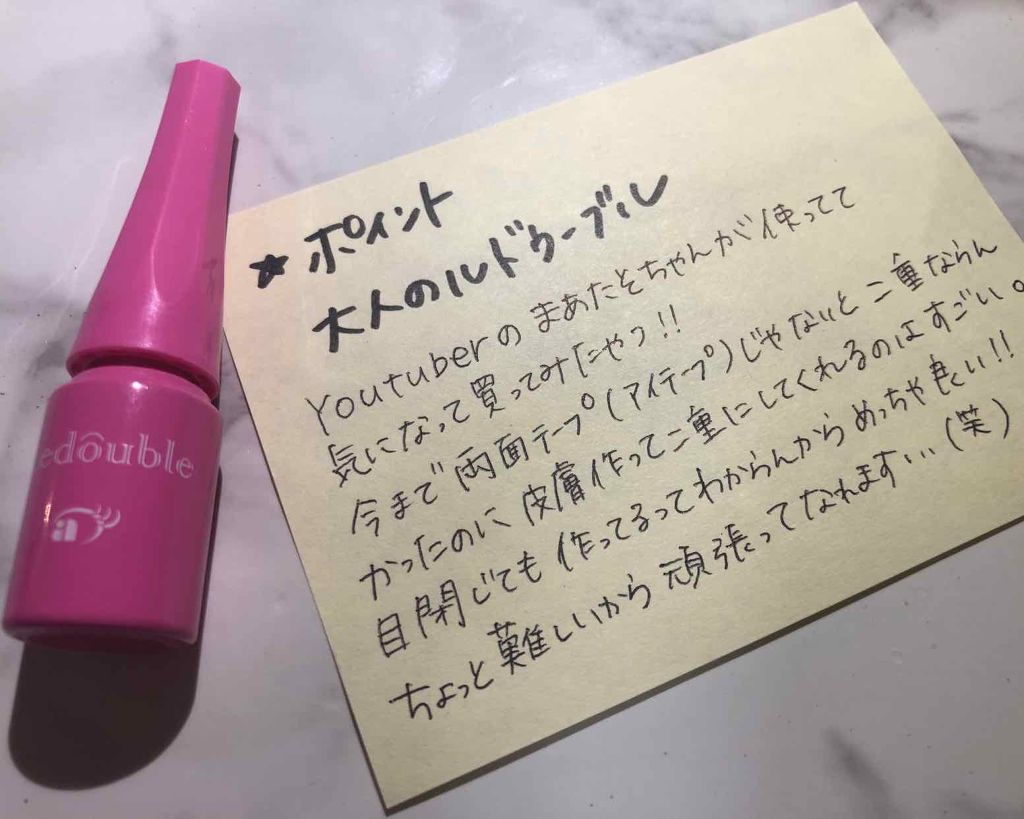 ★ポイント
大人のルドゥーブル
Youtuberの まあたとちゃんが 使ってて
気になって買ってみたやつ!!
今まで 両面テープ(アイテープ)じゃないと 二重ならん
かったのに 皮膚作って二重にしてくれるのはすごい。
目閉じても 作ってるってわからんから めっちゃ良い!!
ちょっと難しいから 頑張ってなれます...(笑)
edouble
a